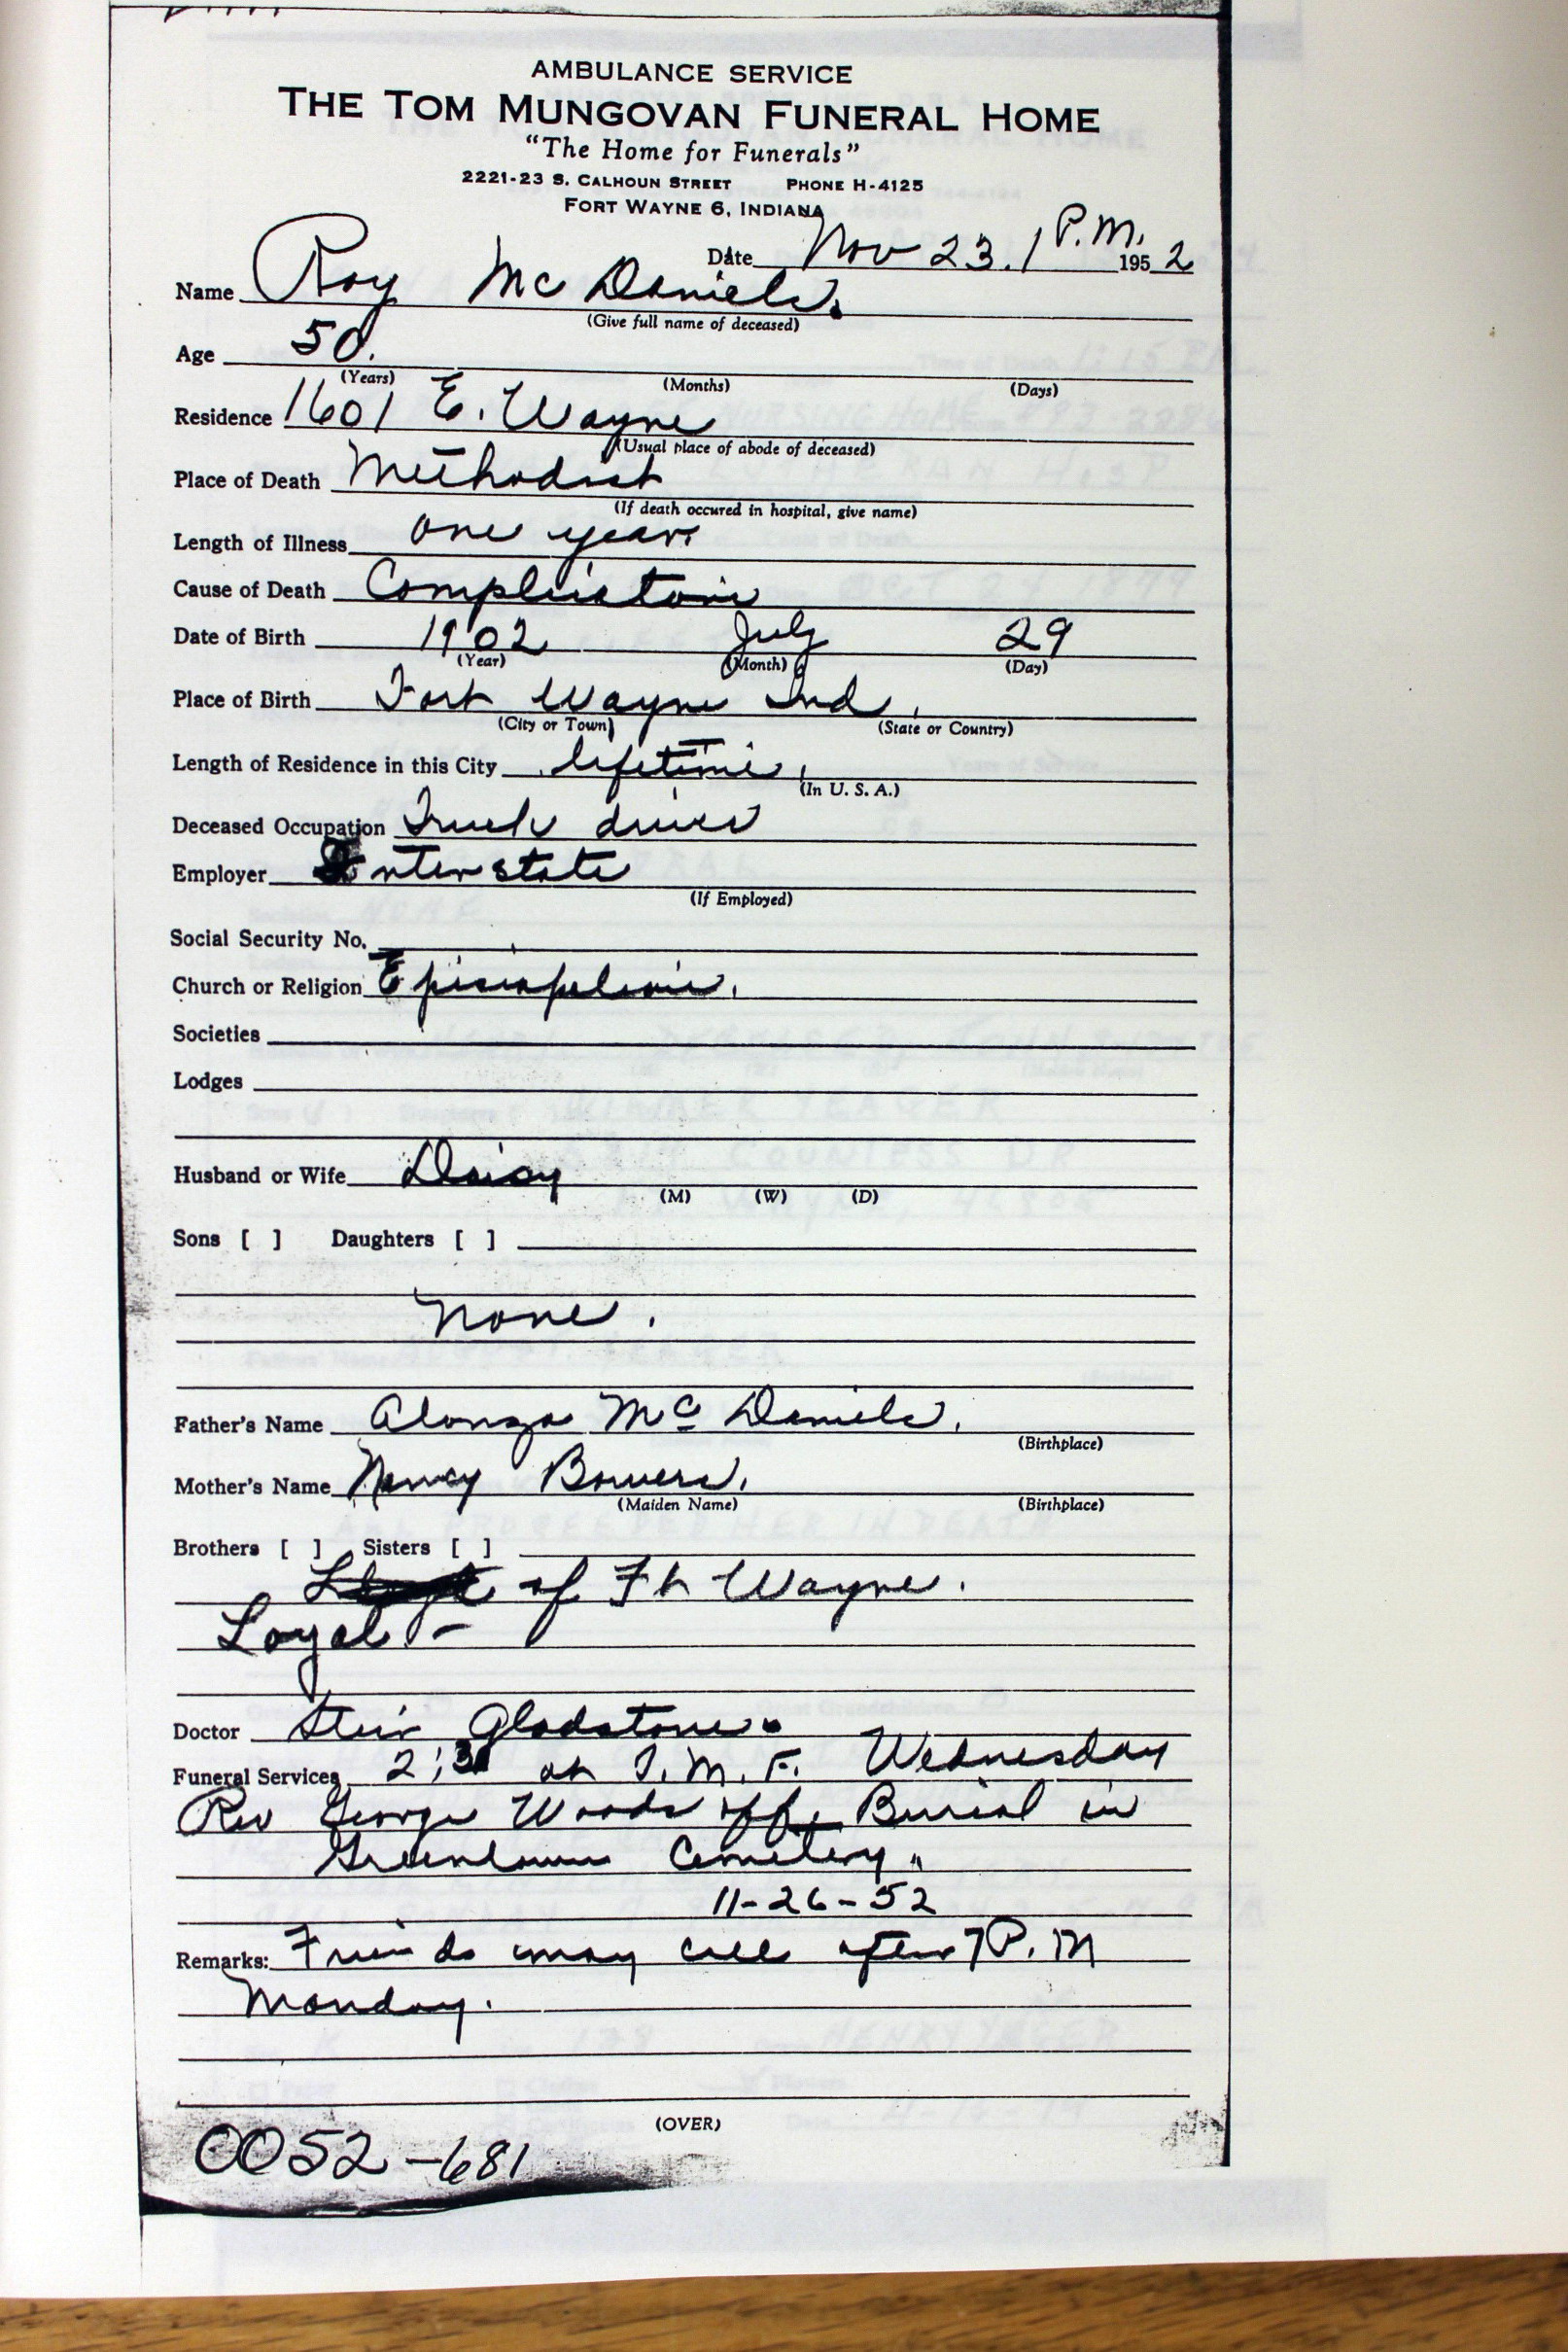 AMBULANCE SERVICE
THE TOM MUNGOVAN FUNERAL HOME
"The Home for Funerals"
2221-23 S. CALHOUN STREET PHONE H-4125
FORT WAYNE 6, INDIANA
Date Nov 23. 1 P.M. 1952
Name Roy McDaniels.
(Give full name of deceased)
Age 50.
(Years) (Months) (Days)
Residence 1601 E. Wayne
(Usual place of abode of deceased)
Place of Death Methodist
(If death occured in hospital, give name)
Length of Illness one year.
Cause of Death Complications
Date of Birth 1902 July 29
(Year) (Month) (Day)
Place of Birth Fort Wayne Ind.
(City or Town) (State or Country)
Length of Residence in this City lifetime.
(In U. S. A.)
Deceased Occupation Truck driver
Employer Interstate
(If Employed)
Social Security No.
Church or Religion Episcopalian.
Societies
Lodges
Husband or Wife Daisy
(M) (W) (D)
Sons [ ] Daughters [ ]
None.
Father's Name Alonzo McDaniels.
(Birthplace)
Mother's Name Nancy Bowers.
(Maiden Name) (Birthplace)
Brothers [ ] Sisters [ ]
of Ft Wayne.
Loyal -
Doctor Gladstone.
Funeral Services 2:30 at T. M. F. Wednesday
Rev George Woods off, Burial in
Greenlawn Cemetery
11-26-52
Remarks: Friends may call after 7 P. M
Monday.
(OVER)
0052-681